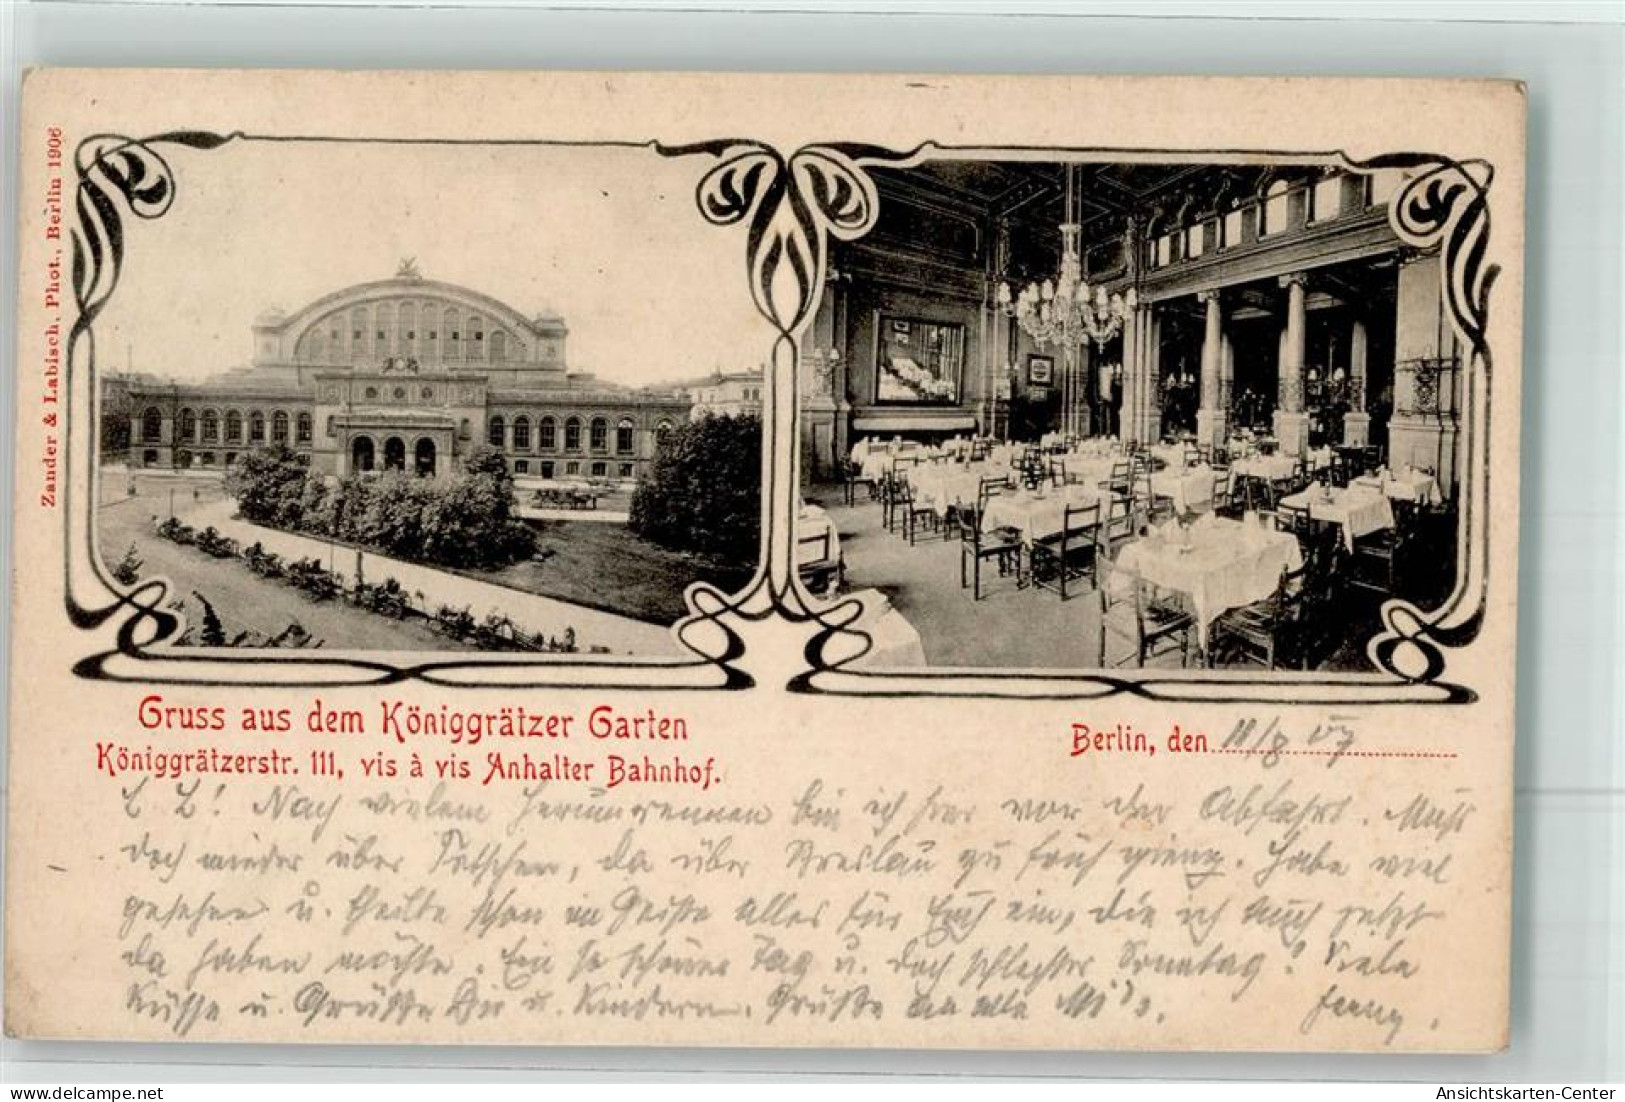 Zander & Labisch, Phot., Berlin 1906
Gruss aus dem Königgrätzer Garten
Königgrätzerstr. 111, vis à vis Anhalter Bahnhof.
Berlin, den 18/8 07
L! Nach vielem Herumrennen bin ich hier vor der Abfahrt. Muß
doch wieder über Tetschen, da über Breslau zu früh ging. Habe viel
gesehen u. theilte schon im Geiste alles für Euch ein, die ich auch jetzt
da haben möchte. Ein so schöner Tag u. doch schlechter Sonntag! Viele
Küsse u. Grüße Dir u. Kindern. Grüße an alle
Ansichtskarten-Center
Ansichtskarten-Center